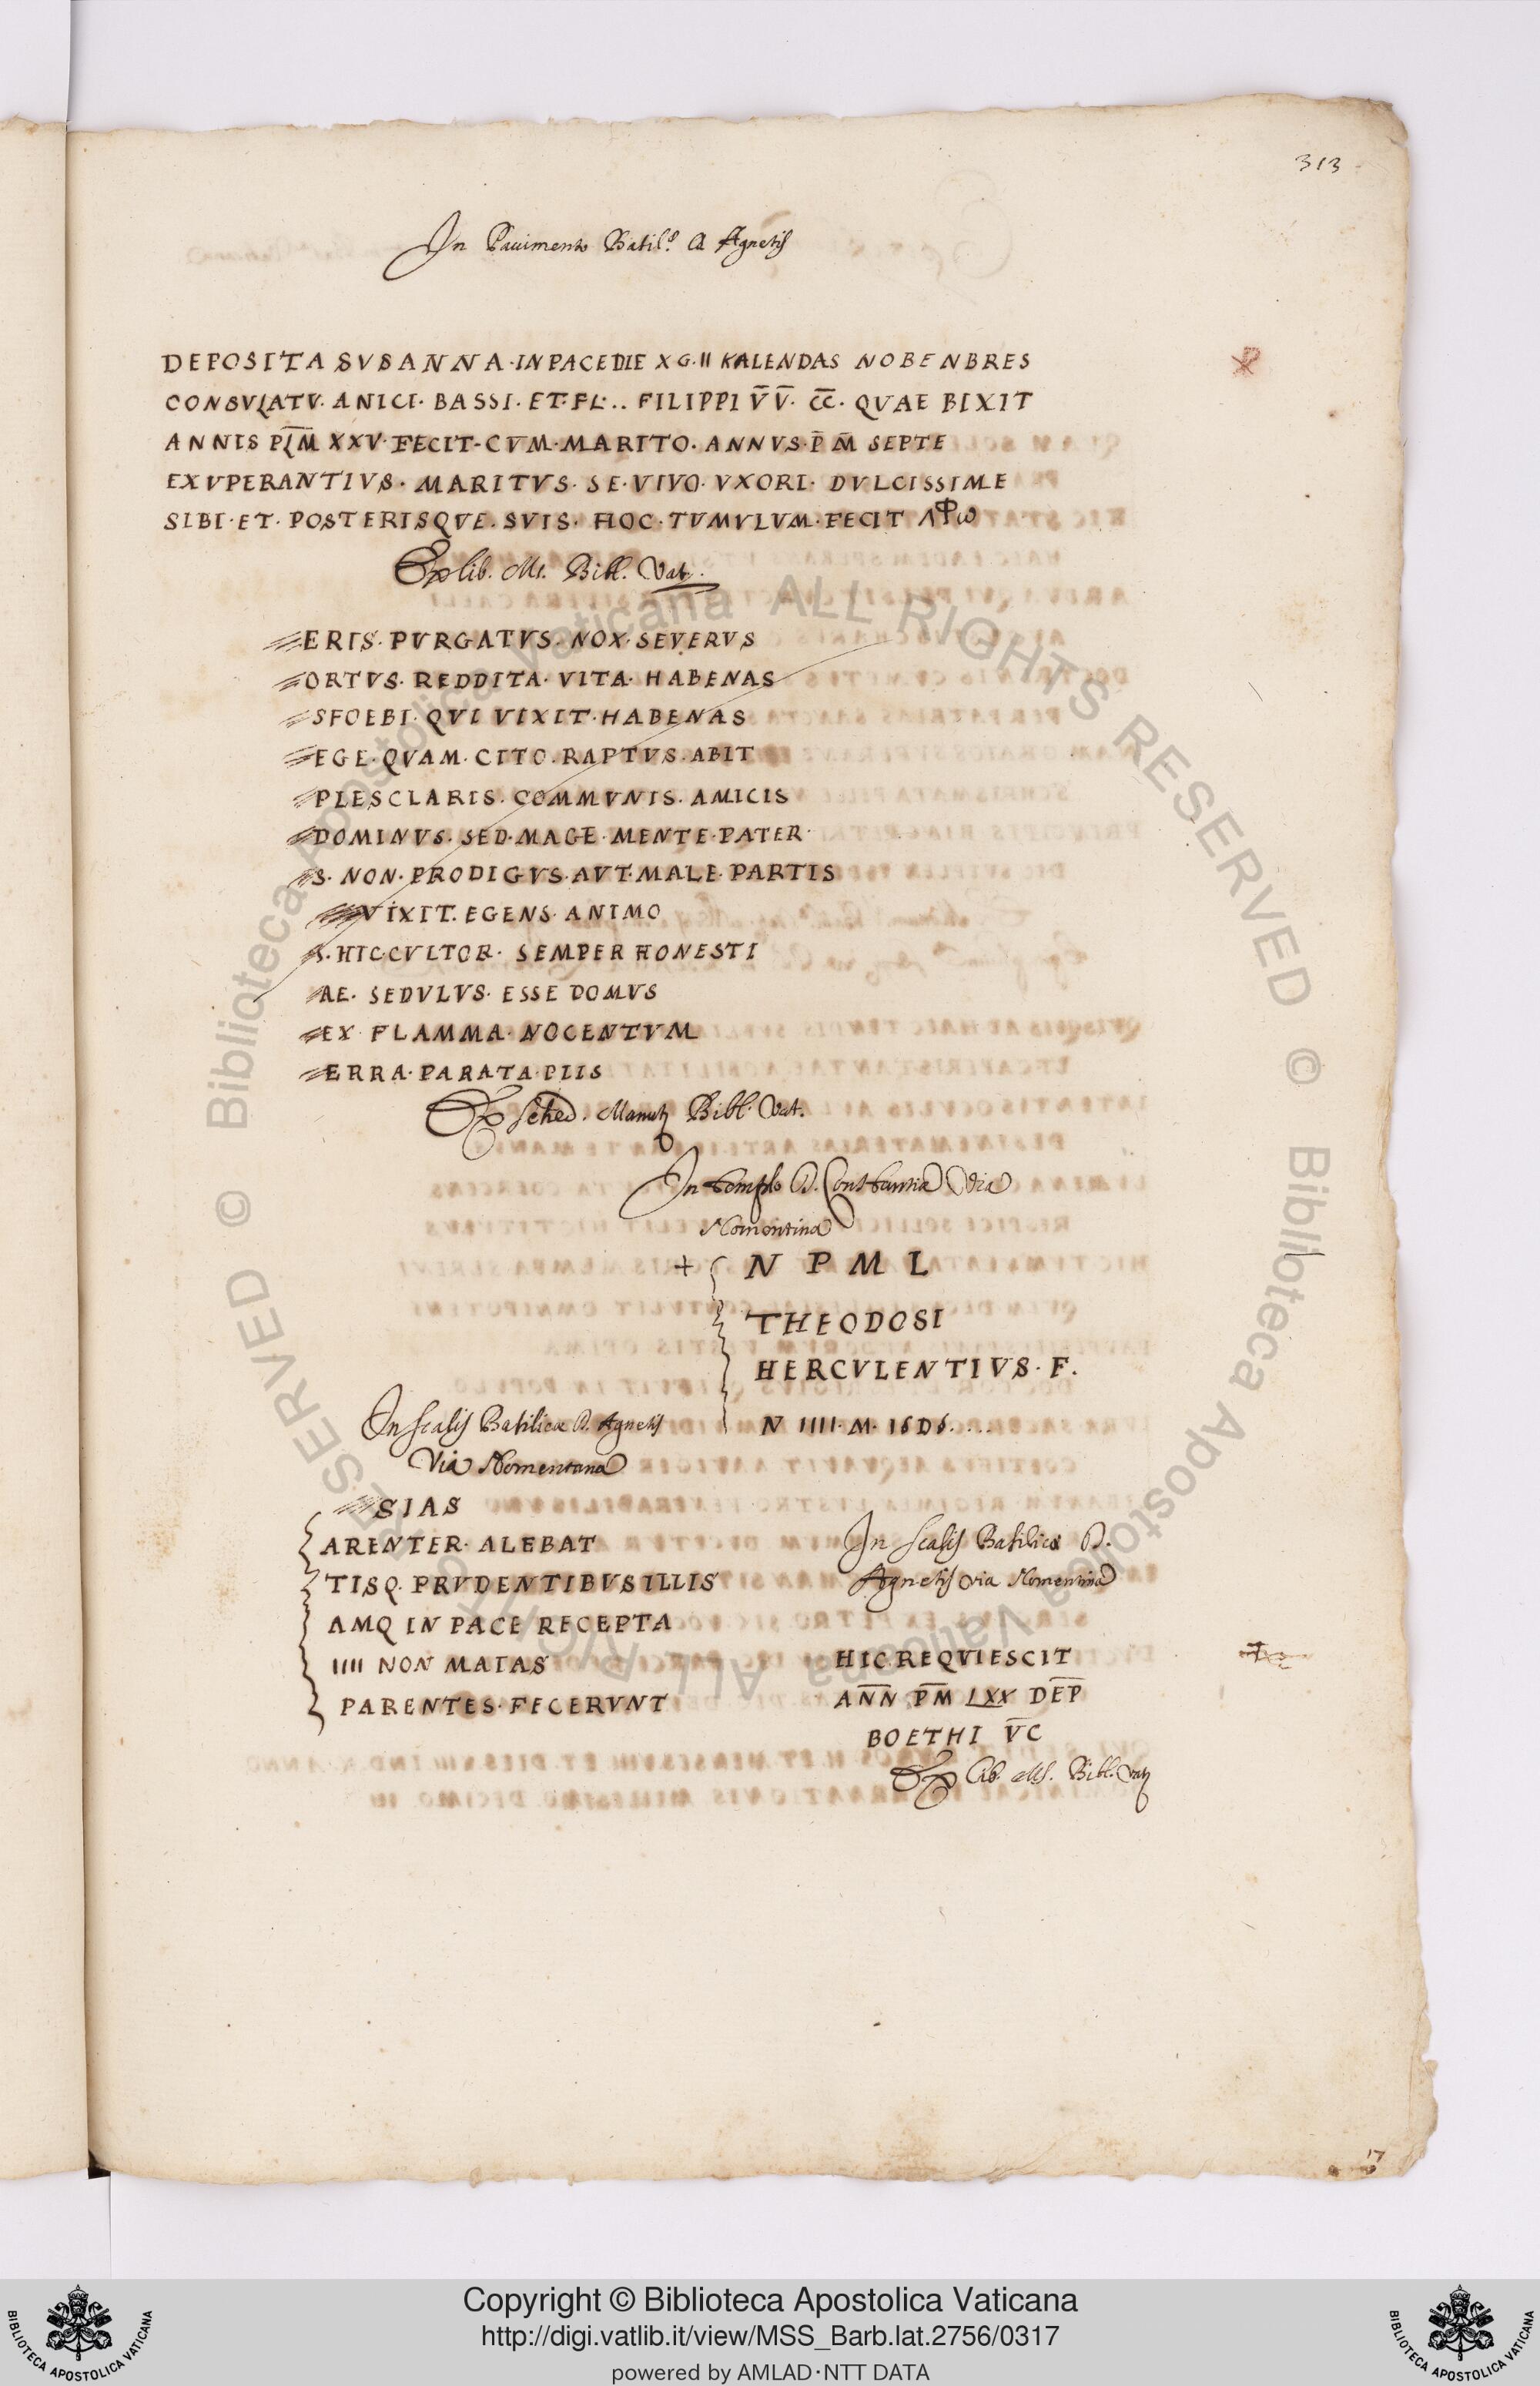 313
In Pauimento Basil.ᵉ D. Agnetis
DEPOSITA SVSANNA·IN PACE DIE XG·II KALENDAS NOBENBRES
CONSVLATV·ANICI·BASSI·ET·FL·.. FILIPPI V̅V̅·C̅C̅· QVAE BIXIT
ANNIS PLM̅ XXV·FECIT·CVM·MARITO·ANNVS·P̅ M̅ SEPTE
EXVPERANTIVS·MARITVS·SE·VIVO·VXORI·DVLCISSIME
SIBI·ET·POSTERISQVE·SVIS·HOC·TVMVLVM·FECIT Λ⳨ω
Ex lib. Ms. Bibl. Vat.
ERIS·PVRGATVS·NOX·SEVERVS
ORTVS·REDDITA·VITA·HABENAS
SFOEBI·QVI VIXIT·HABENAS
EGE·QVAM·CITO·RAPTVS·ABIT
PLESCLARIS·COMMVNIS·AMICIS
DOMINVS·SED·MAGE·MENTE·PATER·
S·NON·PRODIGVS·AVT·MALE·PARTIS
VIXIT·EGENS·ANIMO
S·HIC·CVLTOR·SEMPER HONESTI
AE·SEDVLVS·ESSE DOMVS
EX FLAMMA·NOCENTVM
ERRA·PARATA·PIIS
Ex sched. Manutij Bibl. Vat.
In templo D. Constantiæ Via
Nomentina
+ N P M L
THEODOSI
HERCVLENTIVS·F.
N IIII·M·16D6....
In scalis Basilicæ D. Agnetis
Via Nomentana
SIAS
ARENTER·ALEBAT
TISQ·PRVDENTIBVS ILLIS
AMQ IN PACE RECEPTA
IIII NON MAIAS
PARENTES·FECERVNT
In scalis Basilicæ D.
Agnetis via Nomentina
HIC REQVIESCIT
AN̅N̅ P̅M̅ LXX DE̅P̅
BOETHI V̅C
Ex lib. Ms. Bibl. Vat.
17
© Biblioteca Apostolica Vaticana ALL RIGHTS RESERVED © Biblioteca Apostolica Vaticana ALL RIGHTS RESERVED
Copyright © Biblioteca Apostolica Vaticana
http://digi.vatlib.it/view/MSS_Barb.lat.2756/0317
powered by AMLAD·NTT DATA
BIBLIOTECA APOSTOLICA VATICANA
BIBLIOTECA APOSTOLICA VATICANA